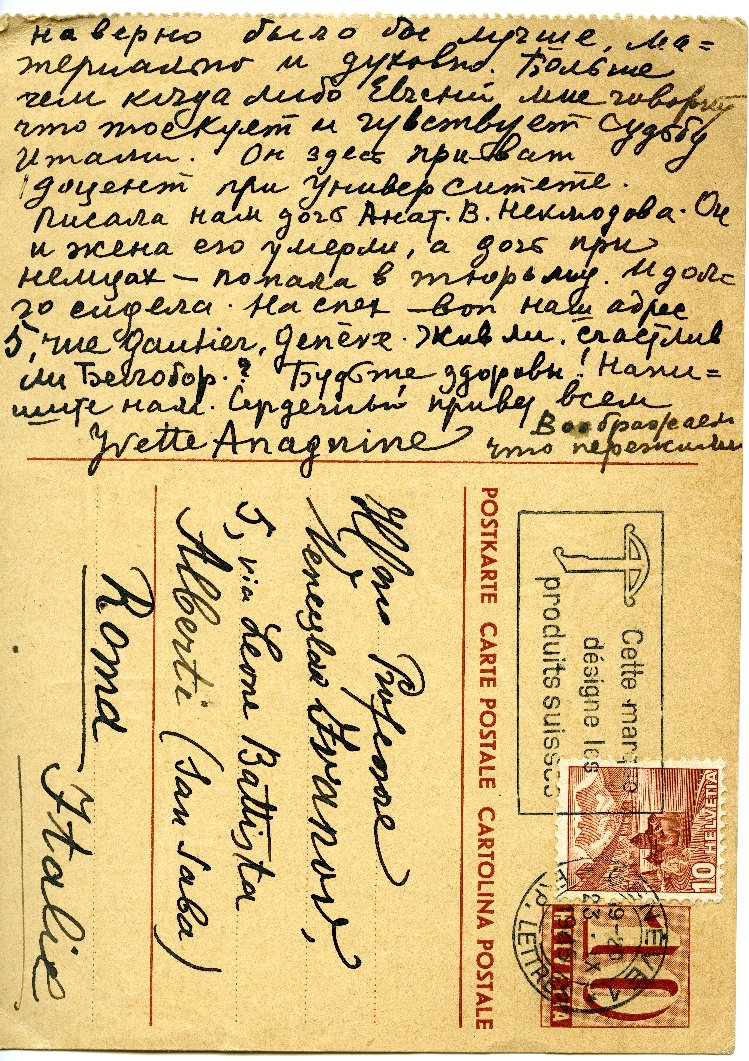 наверно было бы лучше, ма=
териально и духовно. Больше
чем когда либо Евгений мне говорит
что тоскует и чувствует судьбу
Италии. Он здесь приват
доцент при Университете.
Писала нам дочь Анат. В. Неклюдова. Он
и жена его умерли, а дочь при
немцах — попала в тюрьму. И дол=
го сидела. На спех — вот наш адрес
5, rue Gautier, Genève. Жив ли, счастлив
ли Белобор.? Будьте здоровы! Напи=
шите нам. Сердечный привет всем
Yvette Anagnine
Воображаем
что пережили
POSTKARTE CARTE POSTALE CARTOLINA POSTALE
Professore
Venceslao Ivanov,
5, via Leone Battista
Alberti (San Saba)
Roma
Italie
Cette marque
désigne les
produits suisses
10 HELVETIA
GENÈVE
23. X
LETTR
10
HELVETIA